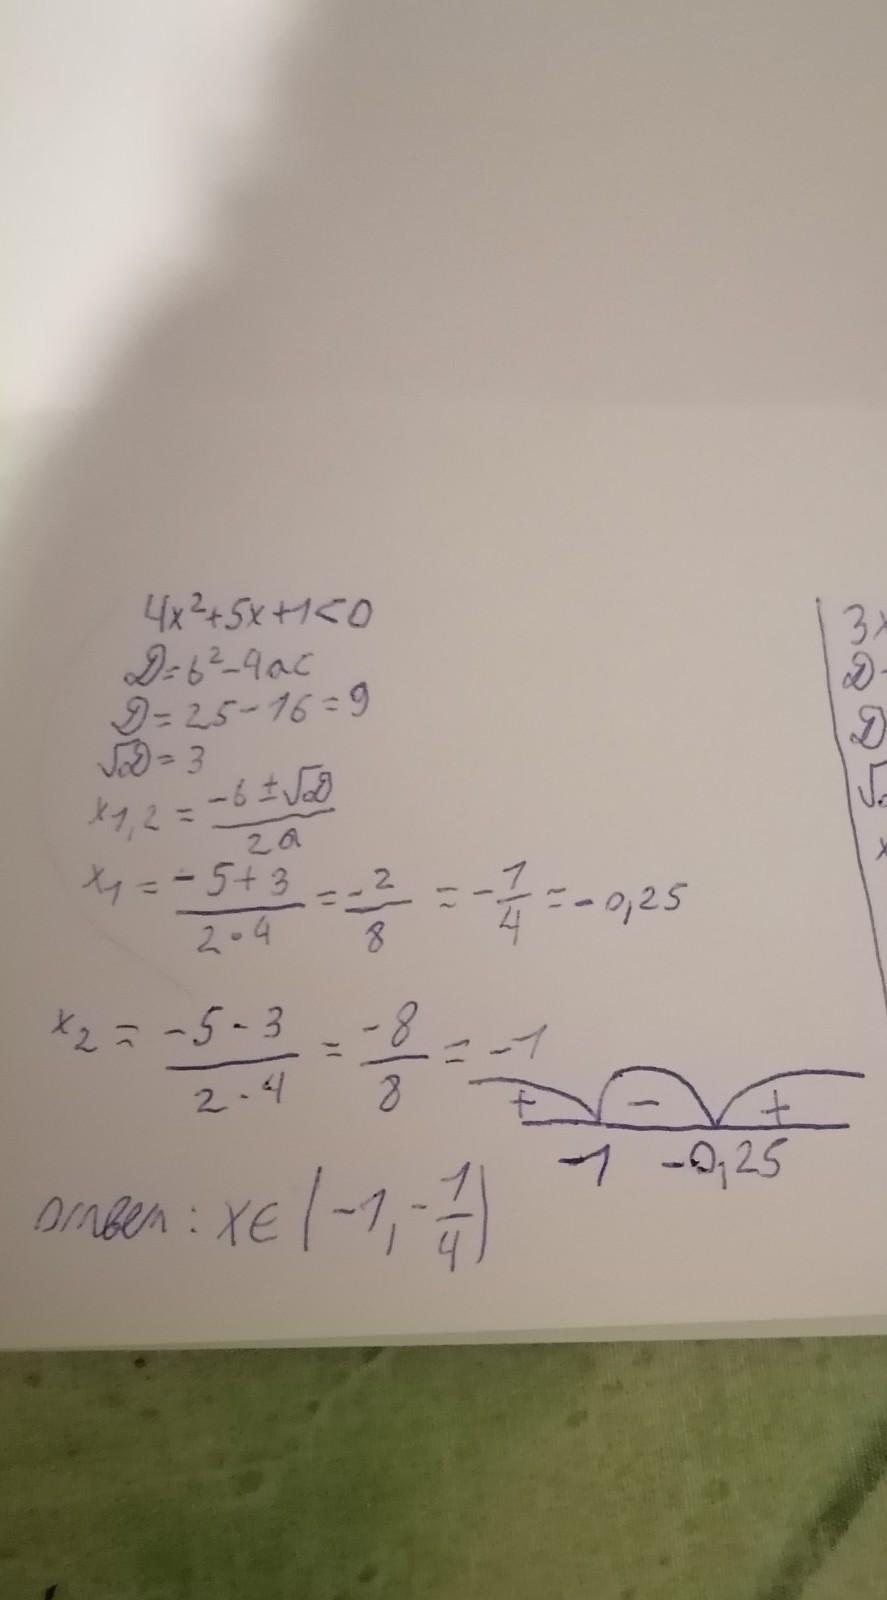 4x²+5x+1<0
D=b²-4ac
D=25-16=9
√D=3
x1,2 = -b±√D / 2a
x1 = -5+3 / 2·4 = -2 / 8 = -1/4 = -0,25
x2 = -5-3 / 2·4 = -8 / 8 = -1
+ - +
-1 -0,25
Ответ: x∈(-1,-1/4)
3x
D-
D
√D
x